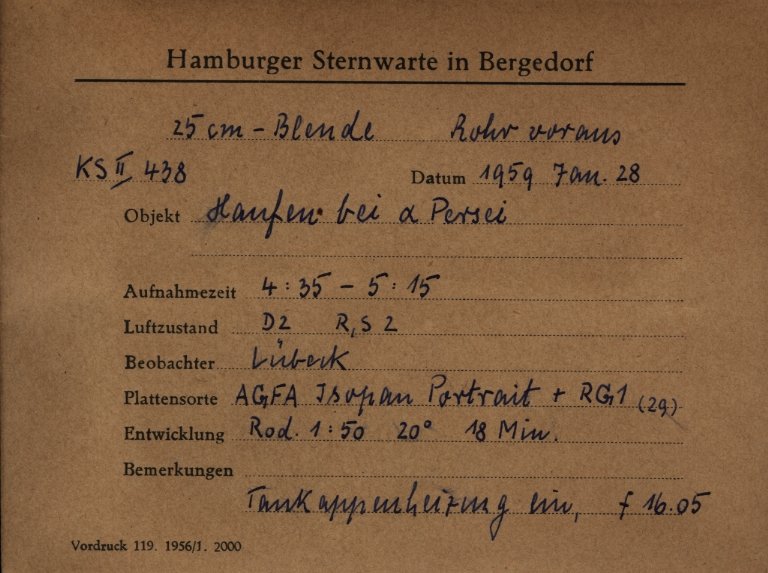 Hamburger Sternwarte in Bergedorf
25 cm - Blende Rohr voraus
KS II 438 Datum 1959 Jan. 28
Objekt Haufen bei α Persei
Aufnahmezeit 4:35 - 5:15
Luftzustand D2 R,S 2
Beobachter Lübeck
Plattensorte AGFA Isopan Portrait + RG1 (2g)
Entwicklung Rod. 1:50 20° 18 Min.
Bemerkungen
Taukappenheizung ein, f 16.05
Vordruck 119. 1956/1. 2000